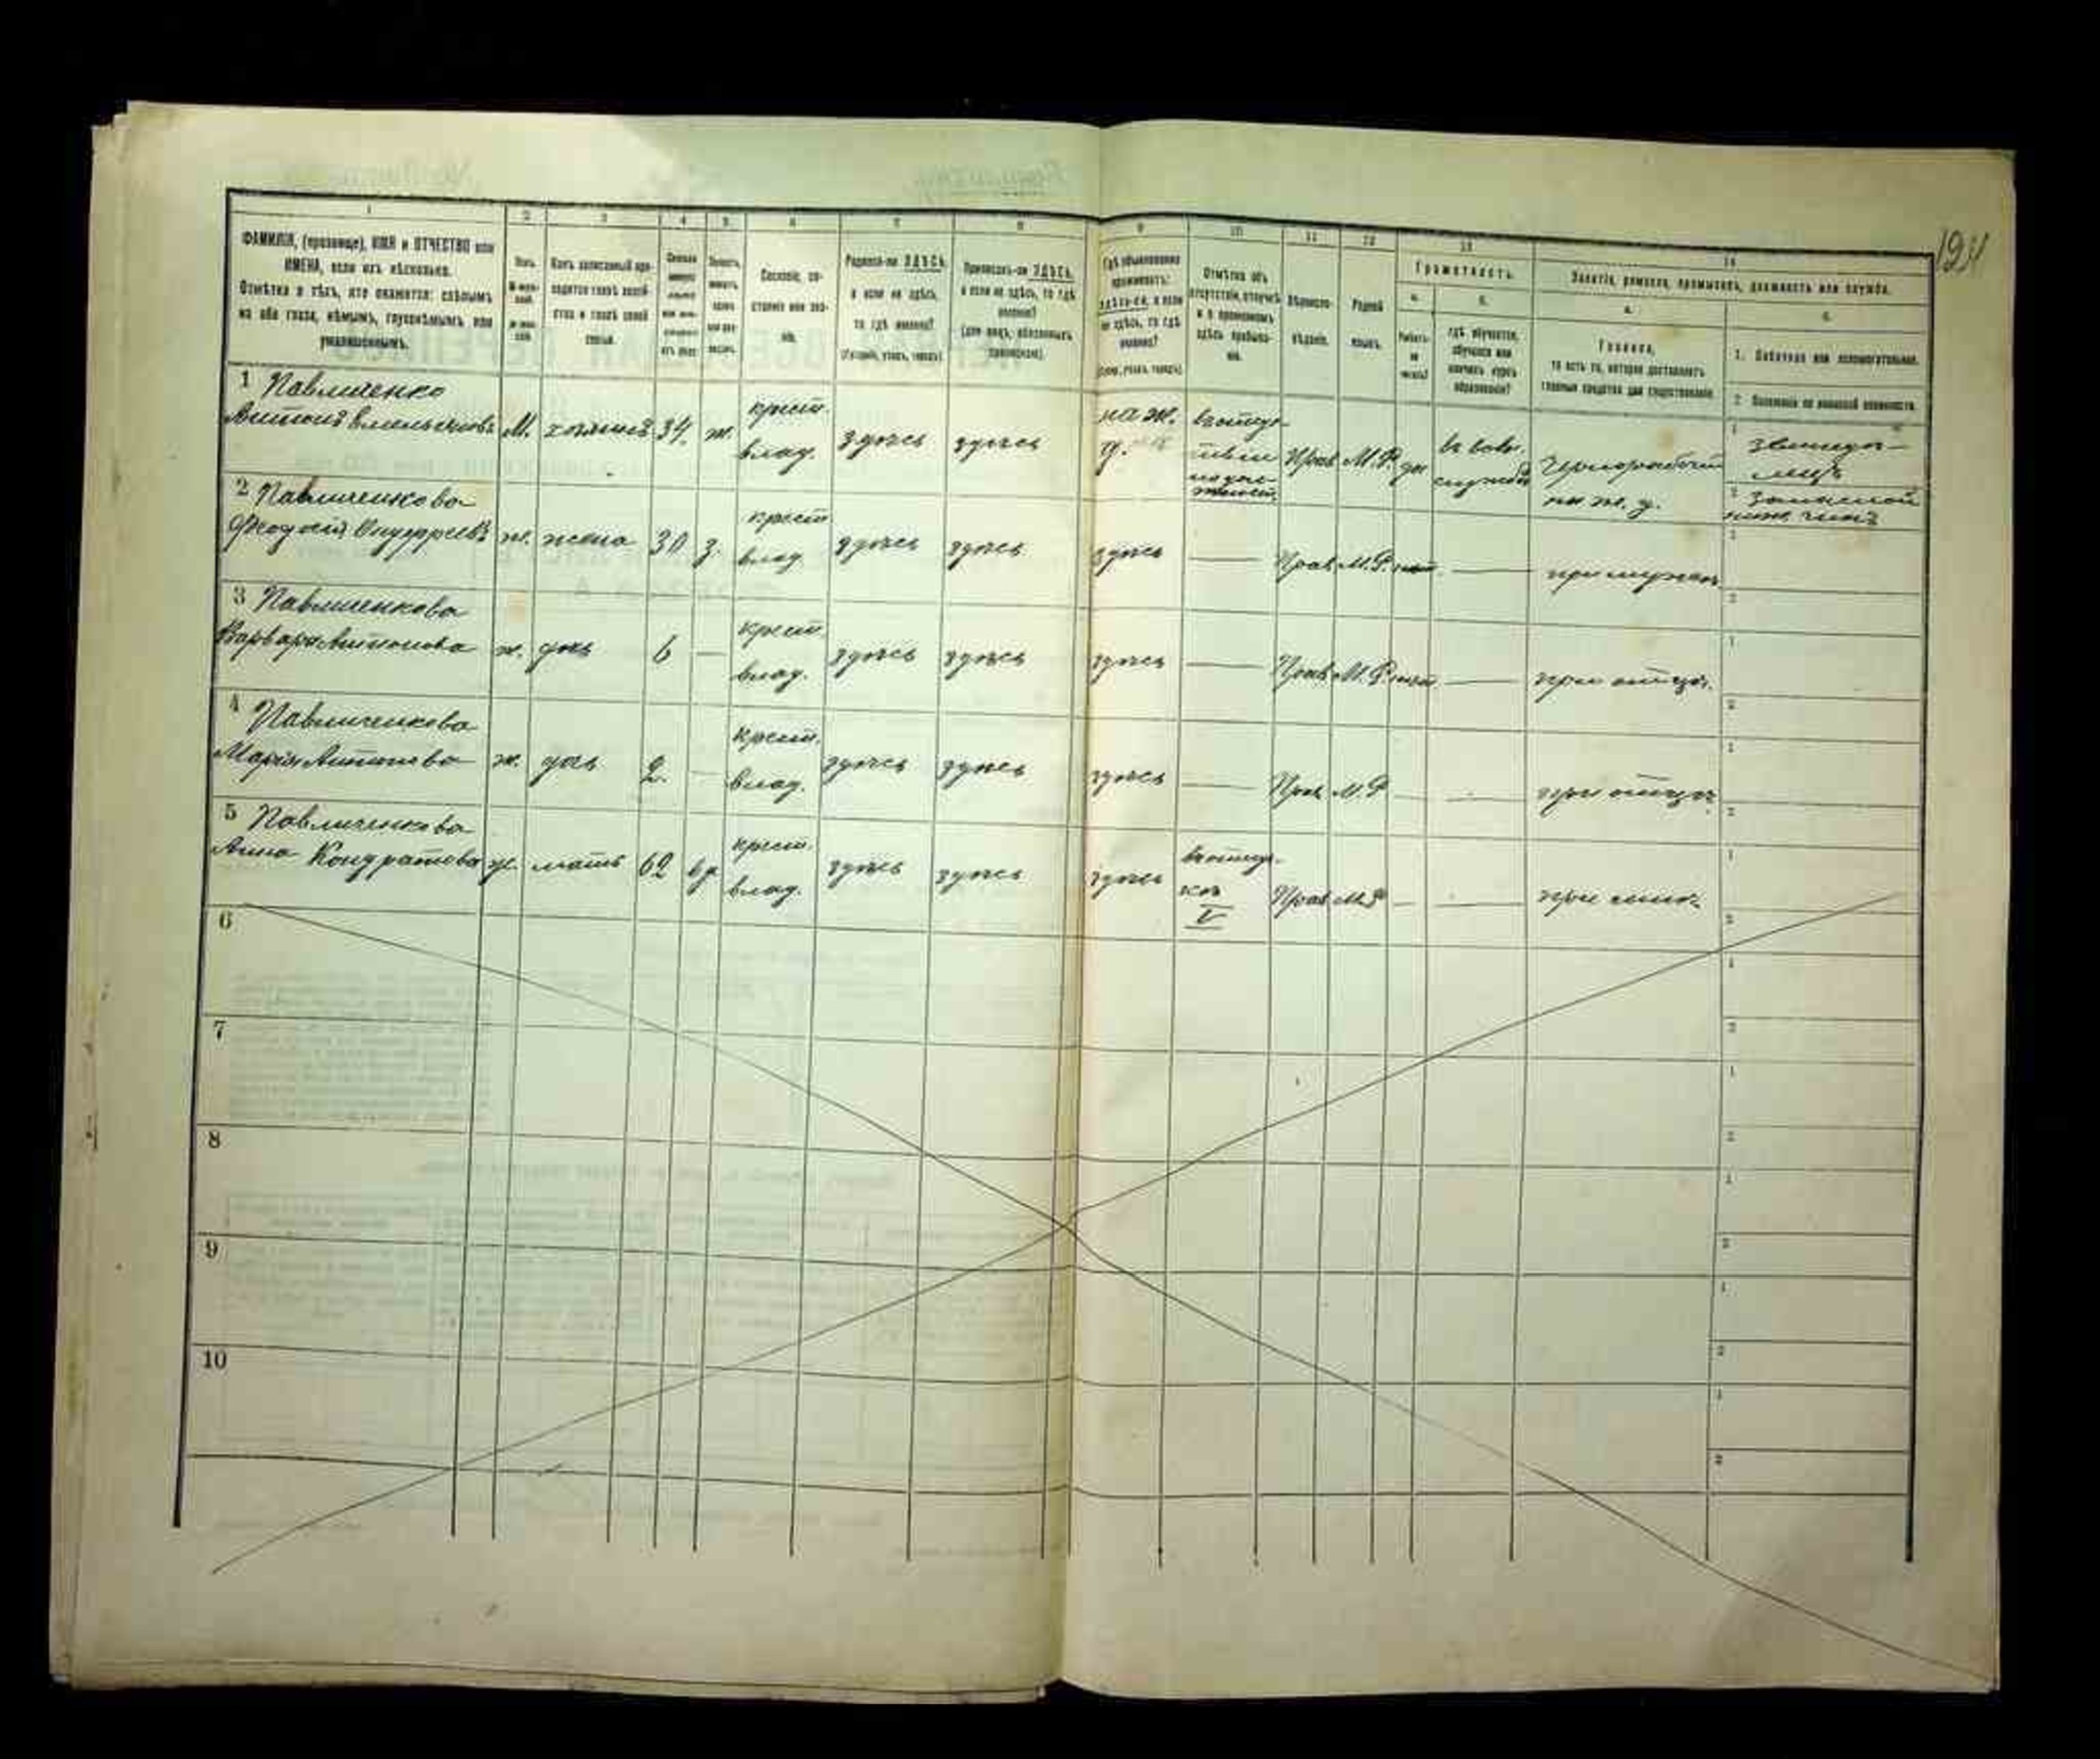 194
1 2 3 4 5 6 7 8 9 10 11 12 13 14
ФАМИЛІЯ, (прозвище), ИМЯ и ОТЧЕСТВО или
ИМЕНА, если ихъ нѣсколько.
Отмѣтка о тѣхъ, кто окажется: слѣпымъ
на оба глаза, нѣмымъ, глухонѣмымъ или
умалишеннымъ.
Полъ.
Какъ записанный при-
ходится главѣ хозяй-
ства и главѣ своей
семьи.
Сословіе, со-
стояніе или зва-
ніе.
Родился-ли ЗДѢСЬ,
а если не здѣсь,
то гдѣ именно?
(Губернія, уѣздъ, городъ)
Приписанъ-ли ЗДѢСЬ,
а если не здѣсь, то гдѣ
именно?
(для лицъ, обязанныхъ
припискою).
Гдѣ обыкновенно
проживаетъ:
здѣсь-ли, а если
не здѣсь, то гдѣ
именно?
(Губер., уѣздъ, городъ)
Отмѣтка объ
отсутствіи, отлучкѣ
и о временномъ
здѣсь пребыва-
ніи.
Вѣроиспо-
вѣданіе.
Родной
языкъ.
Грамотность.
а.
Умѣетъ-
ли
читать?
б.
гдѣ обучается,
обучался или
кончилъ курсъ
образованія?
Занятіе, ремесло, промыселъ, должность или служба.
а.
Главное,
то есть то, которое доставляетъ
главныя средства для существованія.
б.
1. Побочное или вспомогательное.
2. Положеніе по воинской повинности.
1 Павличенко
Антонъ Емельяновъ М. хозяинъ 34 ж. крест. влад. здѣсь здѣсь на ж. д. Прав М.Р. да въ воен. службѣ Чернорабочій на ж. д.
1 земледѣ-
лецъ
2 запасной
ниж. чинъ
2 Павличенкова
Феодосія Онуфріева ж. жена 30 з. крест влад. здѣсь здѣсь здѣсь — Прав. М.Р. нѣт — при мужѣ 1 2
3 Павличенкова
Варвара Антонова ж. дочь 6 — крест. влад. здѣсь здѣсь здѣсь — Прав М.Р. нѣт — при отцѣ. 1 2
4 Павличенкова
Марія Антонова ж. дочь 2. — крест. влад. здѣсь здѣсь здѣсь — Прав М.Р — — при отцѣ 1 2
5 Павличенкова
Анна Кондратова ж. мать 62 вд крест. влад. здѣсь здѣсь здѣсь V Прав М.Р — — при сынѣ 1 2
6 1 2
7 1 2
8 1 2
9 1 2
10 1 2